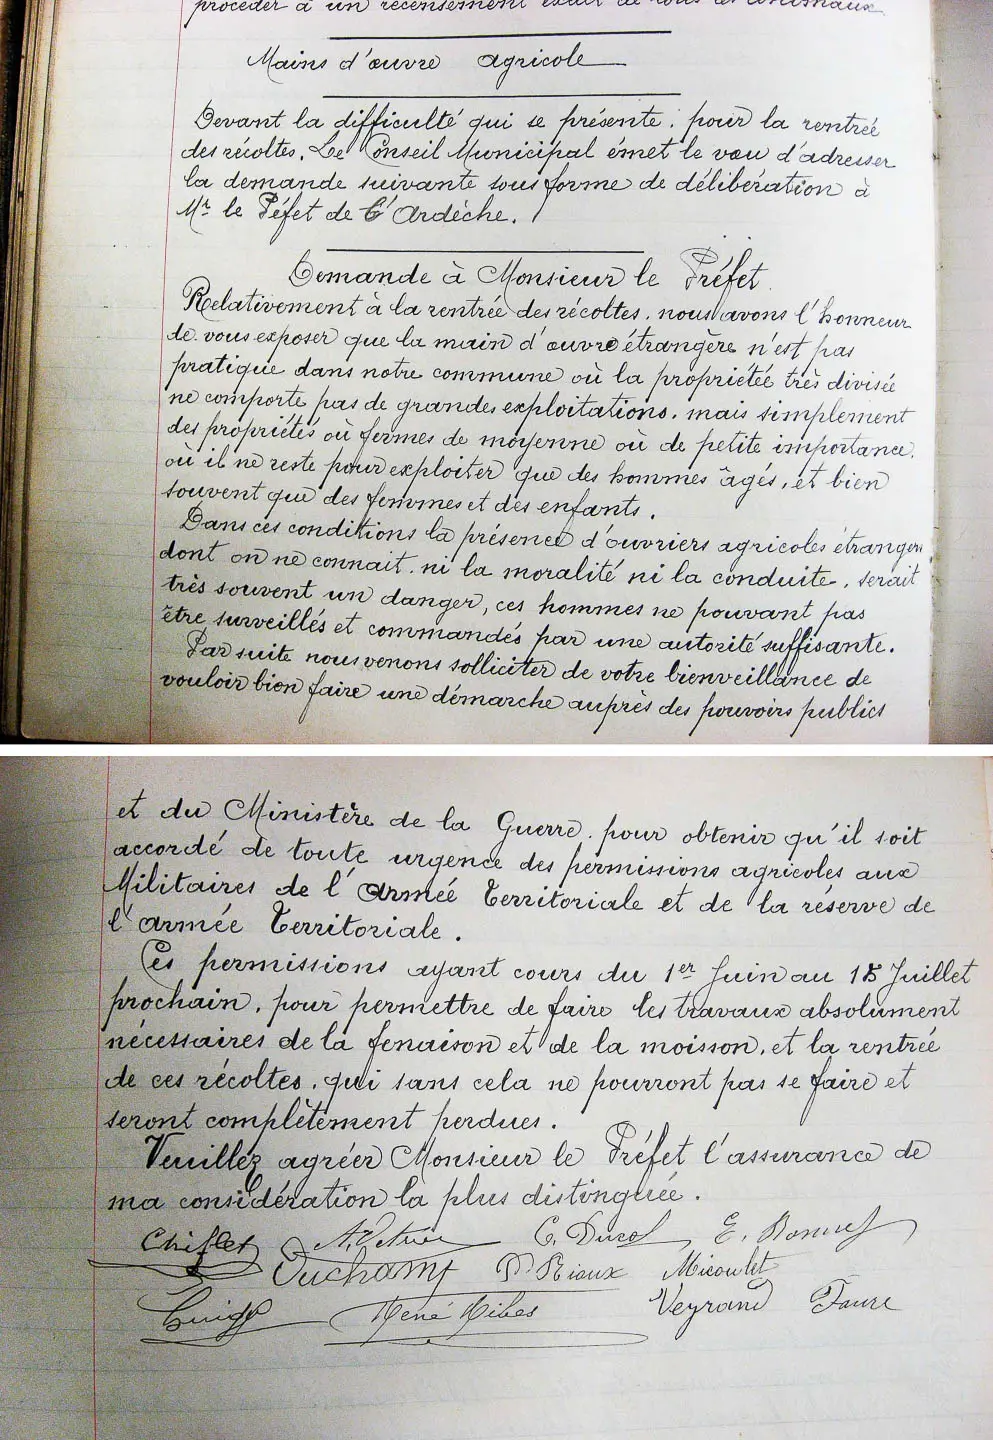 procéder à un recensement exact de tous les animaux
Mains d'œuvre agricole
Devant la difficulté qui se présente, pour la rentrée
des récoltes, Le Conseil Municipal émet le vœu d'adresser
la demande suivante sous forme de délibération à
Mr le Péfet de L'Ardèche.
Demande à Monsieur le Préfet
Relativement à la rentrée des récoltes, nous avons l'honneur
de vous exposer que la main d'œuvre étrangère n'est pas
pratique dans notre commune où la propriétée très divisée
ne comporte pas de grandes exploitations, mais simplement
des propriétés où fermes de moyenne où de petite importance,
où il ne reste pour exploiter que des hommes âgés, et bien
souvent que des femmes et des enfants.
Dans ces conditions la présence d'ouvriers agricoles étrangers
dont on ne connait, ni la moralité ni la conduite, serait
très souvent un danger, ces hommes ne pouvant pas
être surveillés et commandés par une autorité suffisante.
Par suite nous venons solliciter de votre bienveillance de
vouloir bien faire une démarche auprès des pouvoirs publics
et du Ministère de la Guerre, pour obtenir qu'il soit
accordé de toute urgence des permissions agricoles aux
Militaires de l'Armée Territoriale et de la réserve de
l'armée Territoriale.
Ces permissions ayant cours du 1er Juin au 15 Juillet
prochain, pour permettre de faire les travaux absolument
nécessaires de la fenaison et de la moisson, et la rentrée
de ces récoltes, qui sans cela ne pourront pas se faire et
seront complètement perdues.
Veuillez agréer Monsieur le Préfet l'assurance de
ma considération la plus distinguée.
Chiflet C. Durol E.
Duchamp D. Rioux Micoulet
René Ribes Veyrand Faure